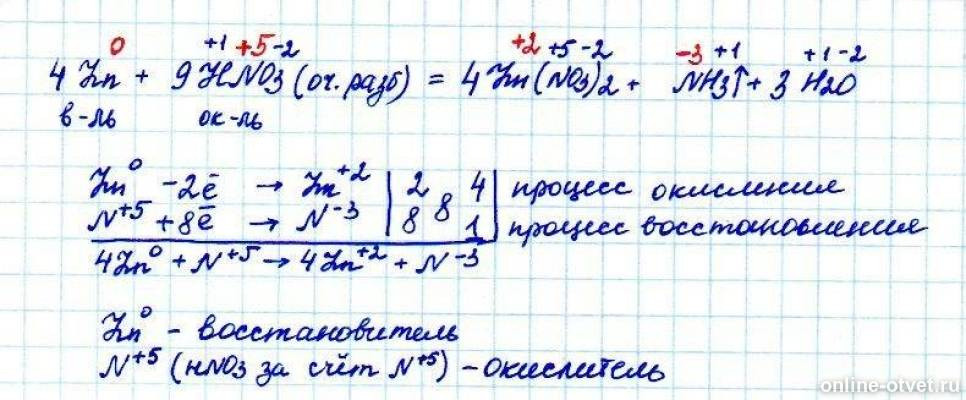 0 +1 +5 -2 +2 +5 -2 -3 +1 +1 -2
4 Zn + 9 HNO3 (оч. разб) = 4 Zn(NO3)2 + NH3↑ + 3 H2O
в-ль ок-ль
Zn⁰ -2ē → Zn⁺² | 2 8 4 | процесс окисления
N⁺⁵ +8ē → N⁻³ | 8 1 | процесс восстановления
4Zn⁰ + N⁺⁵ → 4Zn⁺² + N⁻³
Zn⁰ - восстановитель
N⁺⁵ (HNO3 за счёт N⁺⁵) - окислитель
online-otvet.ru